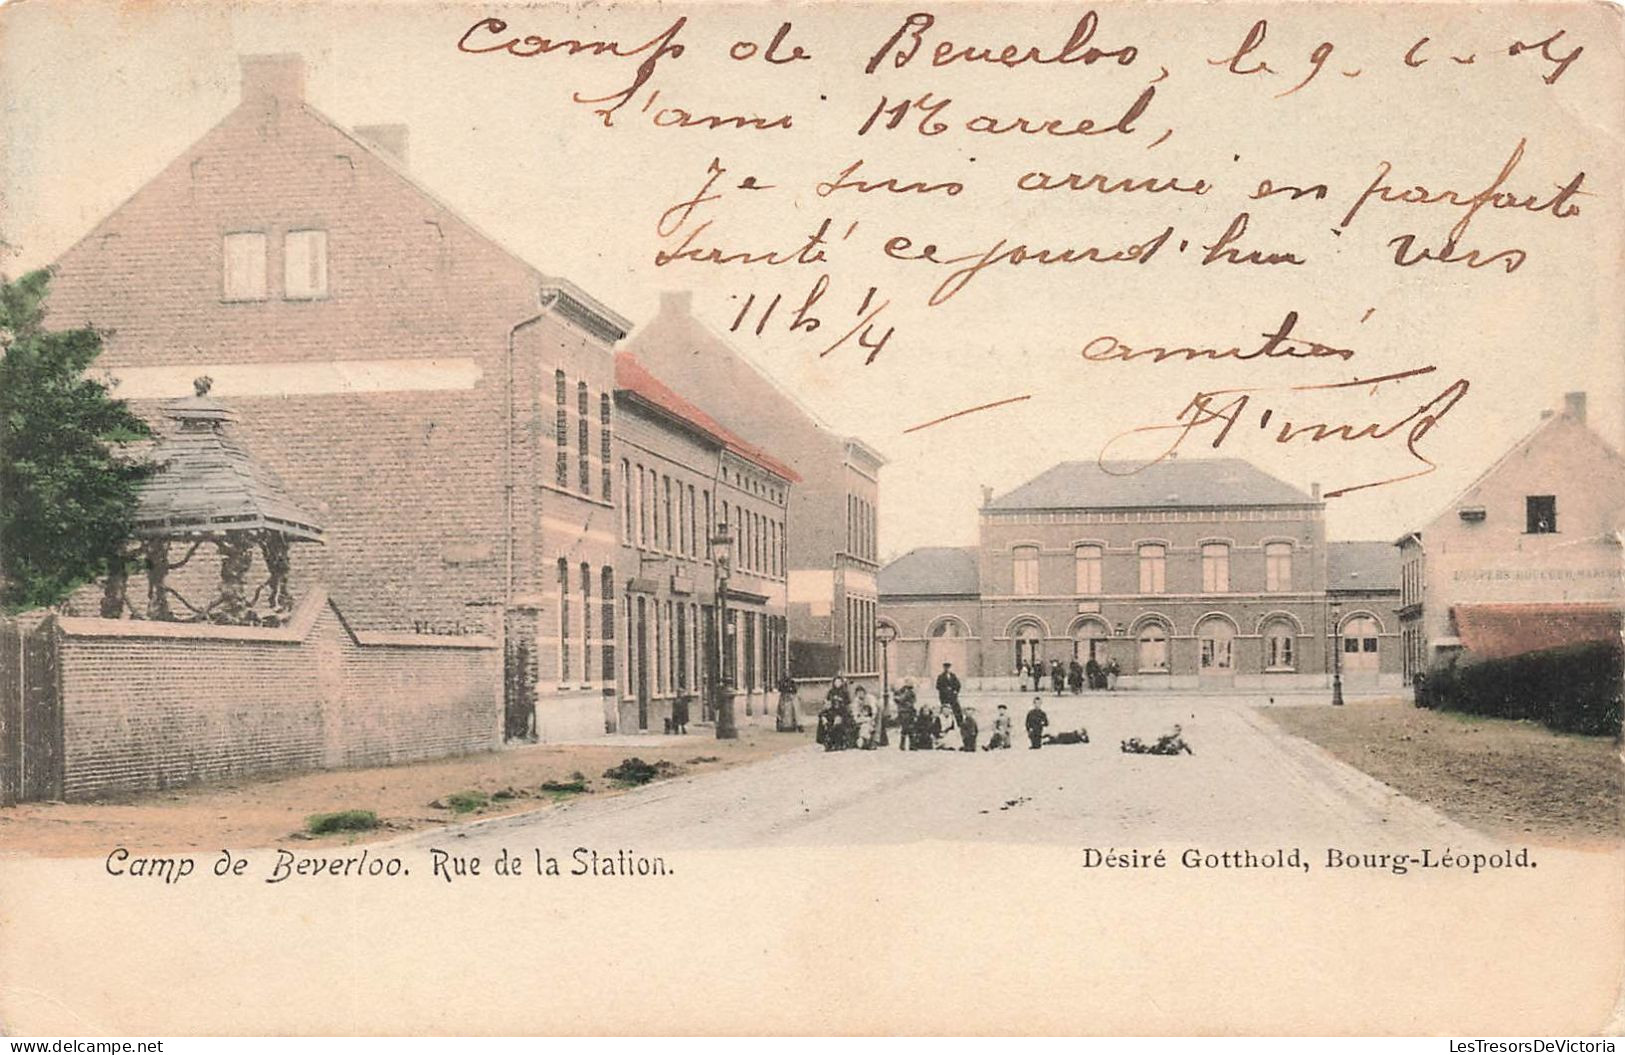 Camp de Beverloo, le 9 - 6 - 04
L'ami Marcel,
Je suis arrivé en parfaite
santé ce jourd'hui vers
11 h 1/4 amitiés
Camp de Beverloo. Rue de la Station.
Désiré Gotthold, Bourg-Léopold.
LesTresorsDeVictoria